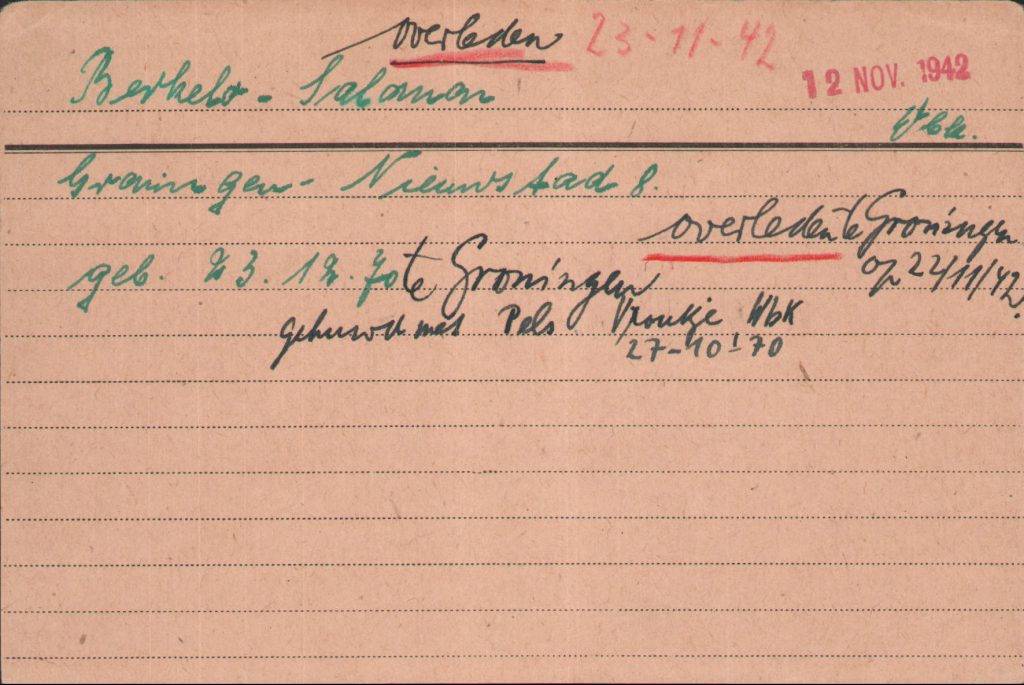 overleden 23-11-42
Berkelo - Salomon
12 NOV. 1942
Wbk.
Groningen - Nieuwstad 8.
overleden te Groningen
op 22/11/42.
geb. 23.12.70 te Groningen
gehuwd met Pels Vrouktje Wbk
27-10-'70